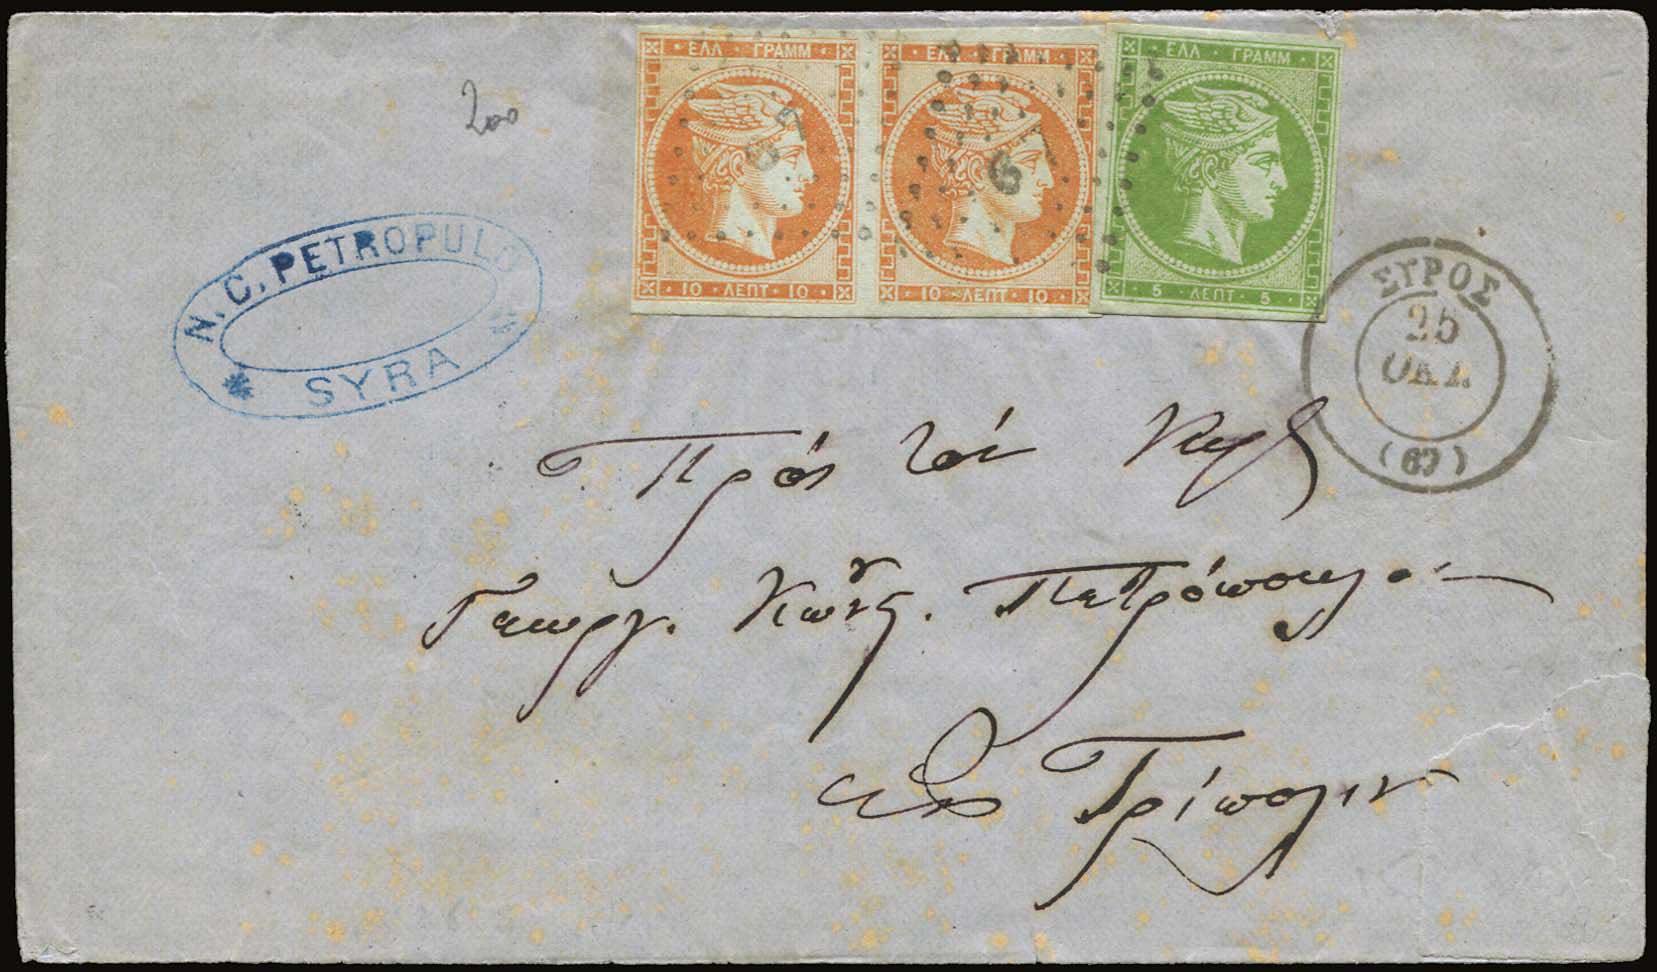 200
ΕΛΛ ΓΡΑΜΜ
10 ΛΕΠΤ 10
ΕΛΛ ΓΡΑΜΜ
10 ΛΕΠΤ 10
ΕΛΛ ΓΡΑΜΜ
5 ΛΕΠΤ 5
67
67
N. C. PETROPULO
SYRA
ΣΥΡΟΣ
25
ΟΚΤ.
(67)
Πρὸς τὸν Κυρ
Γεώργ. Κωνστ. Πετρόπουλον
εἰς Τρίπολιν